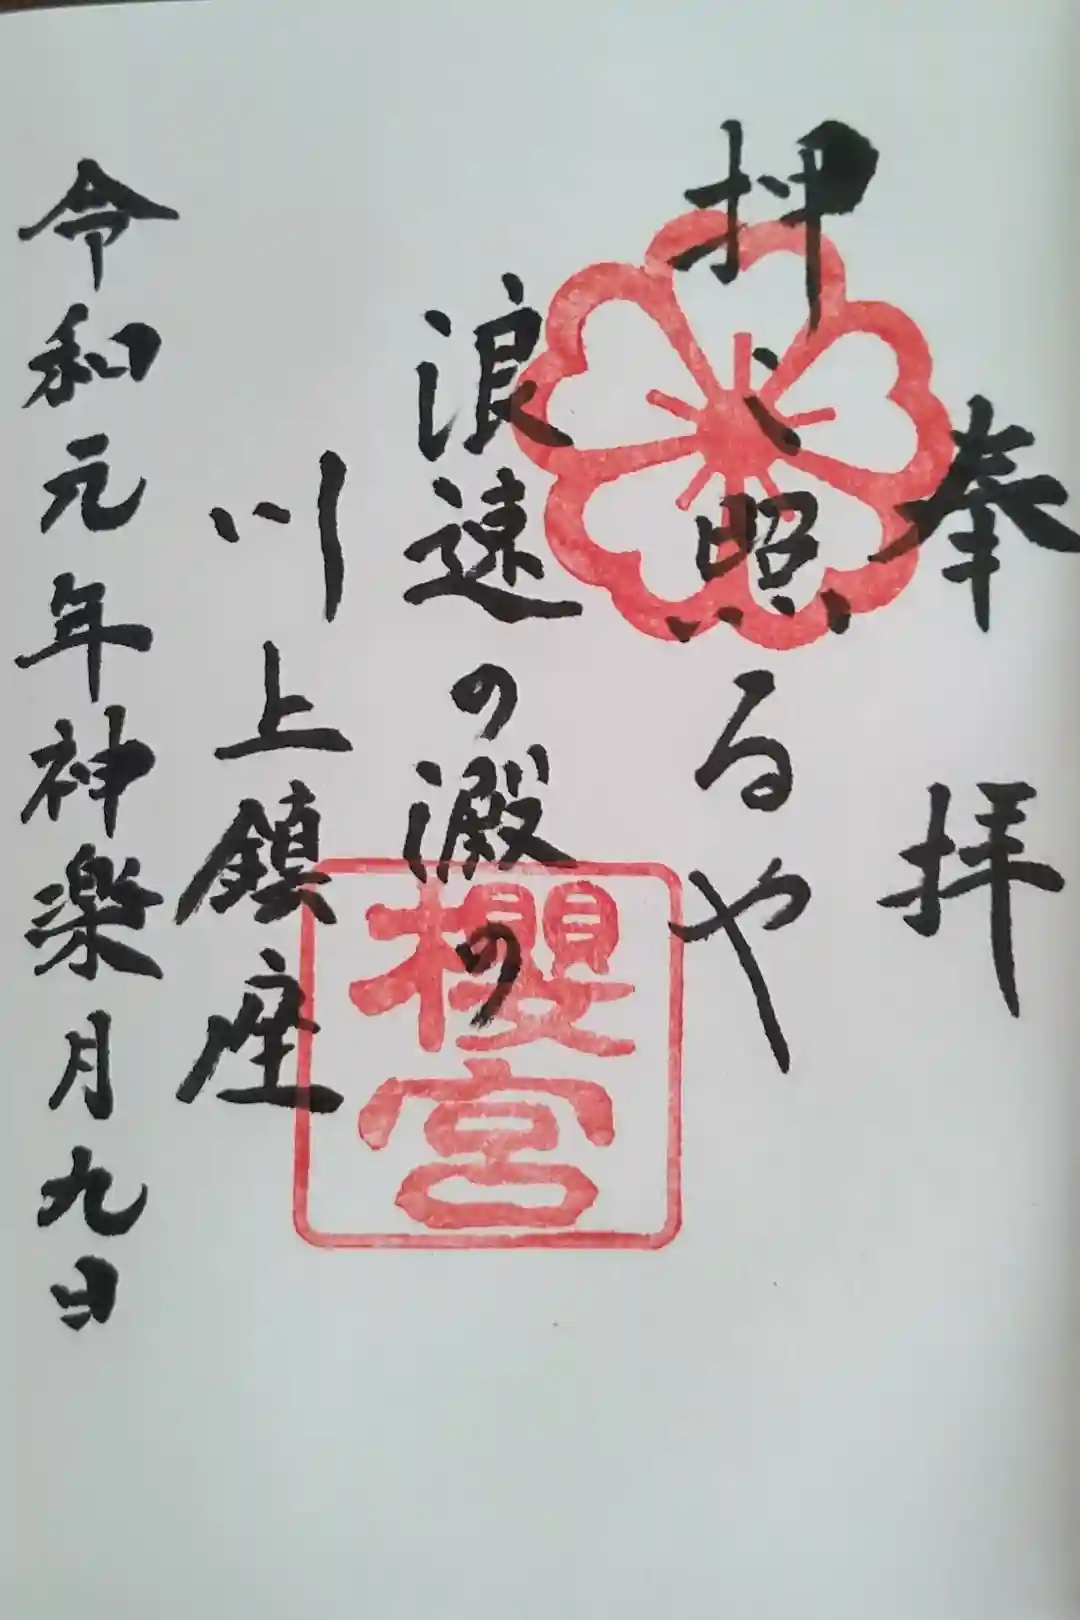 奉拝
押し照るや
浪速の澱の
川上鎮座
令和元年神楽月九日
櫻宮